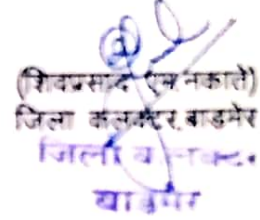 (शिवप्रसाद एम नकाते)
जिला कलक्टर, बाडमेर
जिला कलक्टर
बाड़मेर